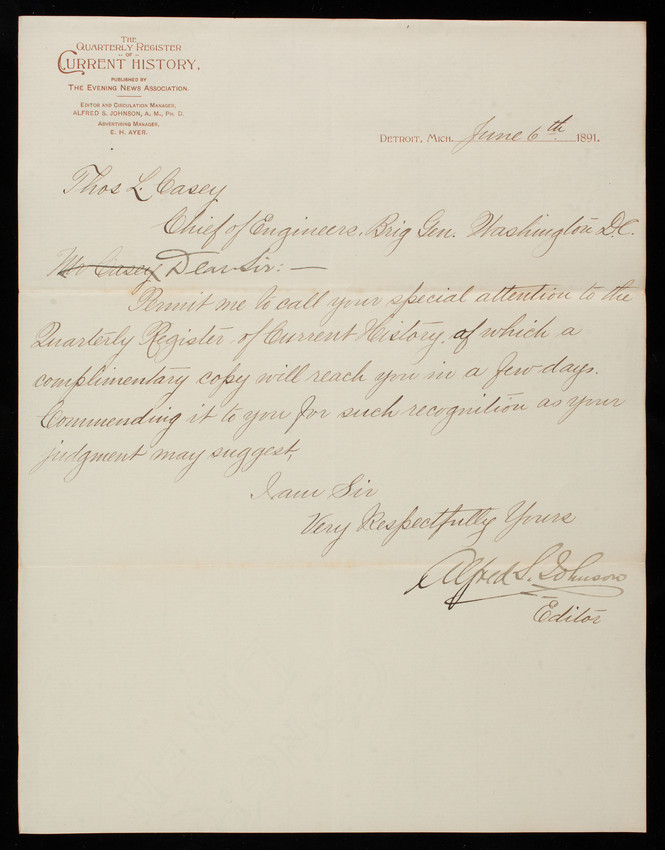 THE
QUARTERLY REGISTER
-- OF --
CURRENT HISTORY.
PUBLISHED BY
THE EVENING NEWS ASSOCIATION.
EDITOR AND CIRCULATION MANAGER,
ALFRED S. JOHNSON, A. M., PH. D.
ADVERTISING MANAGER,
E. H. AYER.
DETROIT, MICH. June 6th 1891.
Thos L. Casey
Chief of Engineers, Brig Gen. Washington D.C.
Mr Casey Dear Sir: —
Permit me to call your special attention to the
Quarterly Register of Current History, of which a
complimentary copy will reach you in a few days.
Commending it to you for such recognition as your
judgment may suggest,
I am Sir
Very Respectfully Yours
Alfred S. Johnson
Editor